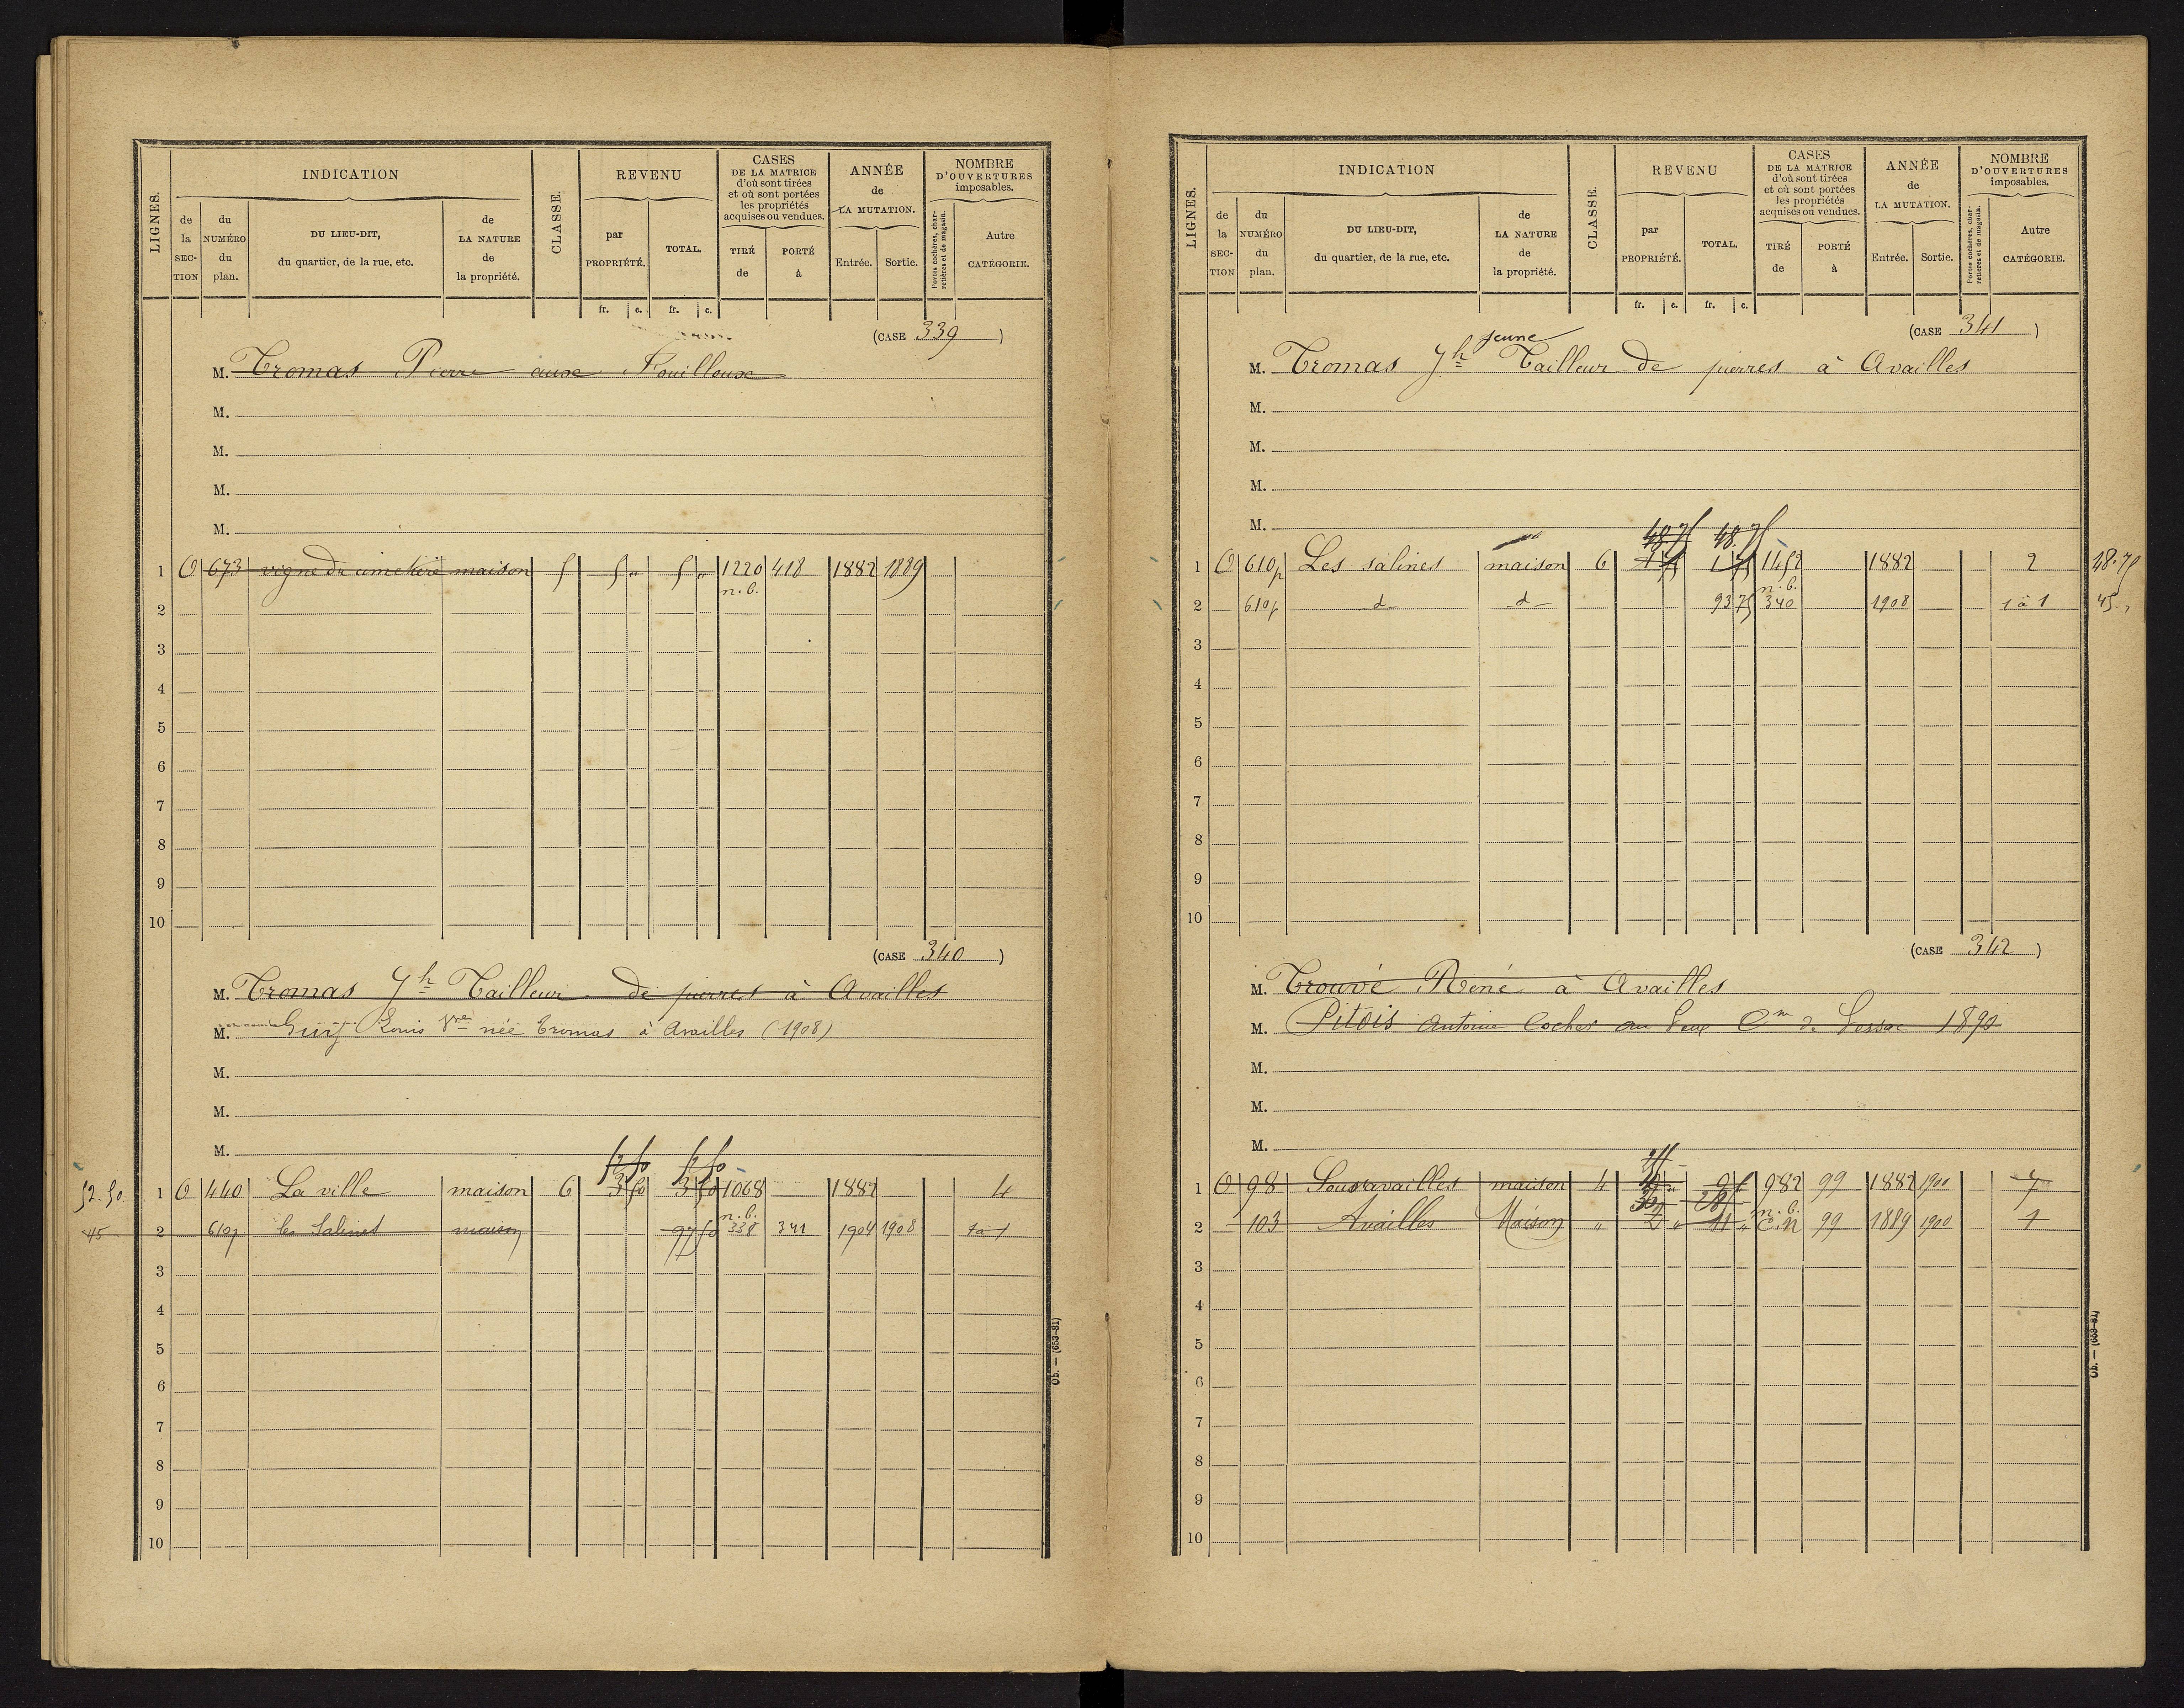 LIGNES.
INDICATION
CLASSE.
REVENU
CASES
DE LA MATRICE
d'où sont tirées
et où sont portées
les propriétés
acquises ou vendues.
ANNÉE
de
LA MUTATION.
NOMBRE
D'OUVERTURES
imposables.
de la SECTION
du NUMÉRO du plan.
DU LIEU-DIT,
du quartier, de la rue, etc.
de LA NATURE de la propriété.
par PROPRIÉTÉ.
TOTAL.
TIRÉ de
PORTÉ à
Entrée.
Sortie.
Portes cochères, charretières et de magasin.
Autre CATÉGORIE.
fr. c. fr. c.
(CASE 339)
M. Tromas Pierre aux Fouilloux
M.
M.
M.
M.
1 O 673 vigne du cimetière maison 5 5 „ 5 „ 1220 418 1882 1889
n.b.
2
3
4
5
6
7
8
9
10
(CASE 340)
M. Tromas Jh Tailleur de pierres à Availles
M. Louis Vve née Tromas à Availles (1908)
M.
M.
M.
52.50 52.50
52.50 1 O 440 La ville maison 6 3 50 3 50 1068 1882 4
n.b.
45 2 610p les Salines maison 97 50 338 341 1904 1908 1 à 1
3
4
5
6
7
8
9
10
Ob. — (653-81)
LIGNES.
INDICATION
CLASSE.
REVENU
CASES
DE LA MATRICE
d'où sont tirées
et où sont portées
les propriétés
acquises ou vendues.
ANNÉE
de
LA MUTATION.
NOMBRE
D'OUVERTURES
imposables.
de la SECTION
du NUMÉRO du plan.
DU LIEU-DIT,
du quartier, de la rue, etc.
de LA NATURE de la propriété.
par PROPRIÉTÉ.
TOTAL.
TIRÉ de
PORTÉ à
Entrée.
Sortie.
Portes cochères, charretières et de magasin.
Autre CATÉGORIE.
fr. c. fr. c.
(CASE 341)
jeune
M. Tromas Jh Tailleur de pierres à Availles
M.
M.
M.
M.
48.75 48.75
1 O 610p Les salines maison 6 1 75 1 75 1152 1882 2 48.75
n.b.
2 610p d d 93 75 340 1908 1 à 1 45.„
3
4
5
6
7
8
9
10
(CASE 342)
M. Trouvé Réné à Availles
M. Pitois Antoine Cocher au Cm de Lessac 1890
M.
M.
M.
1 O 98 Sousavailles maison 4 982 99 1882 1900 7
n.b.
2 103 Availles Maison „ C.N 99 1889 1900 1
3
4
5
6
7
8
9
10
Ob. — (653-81)